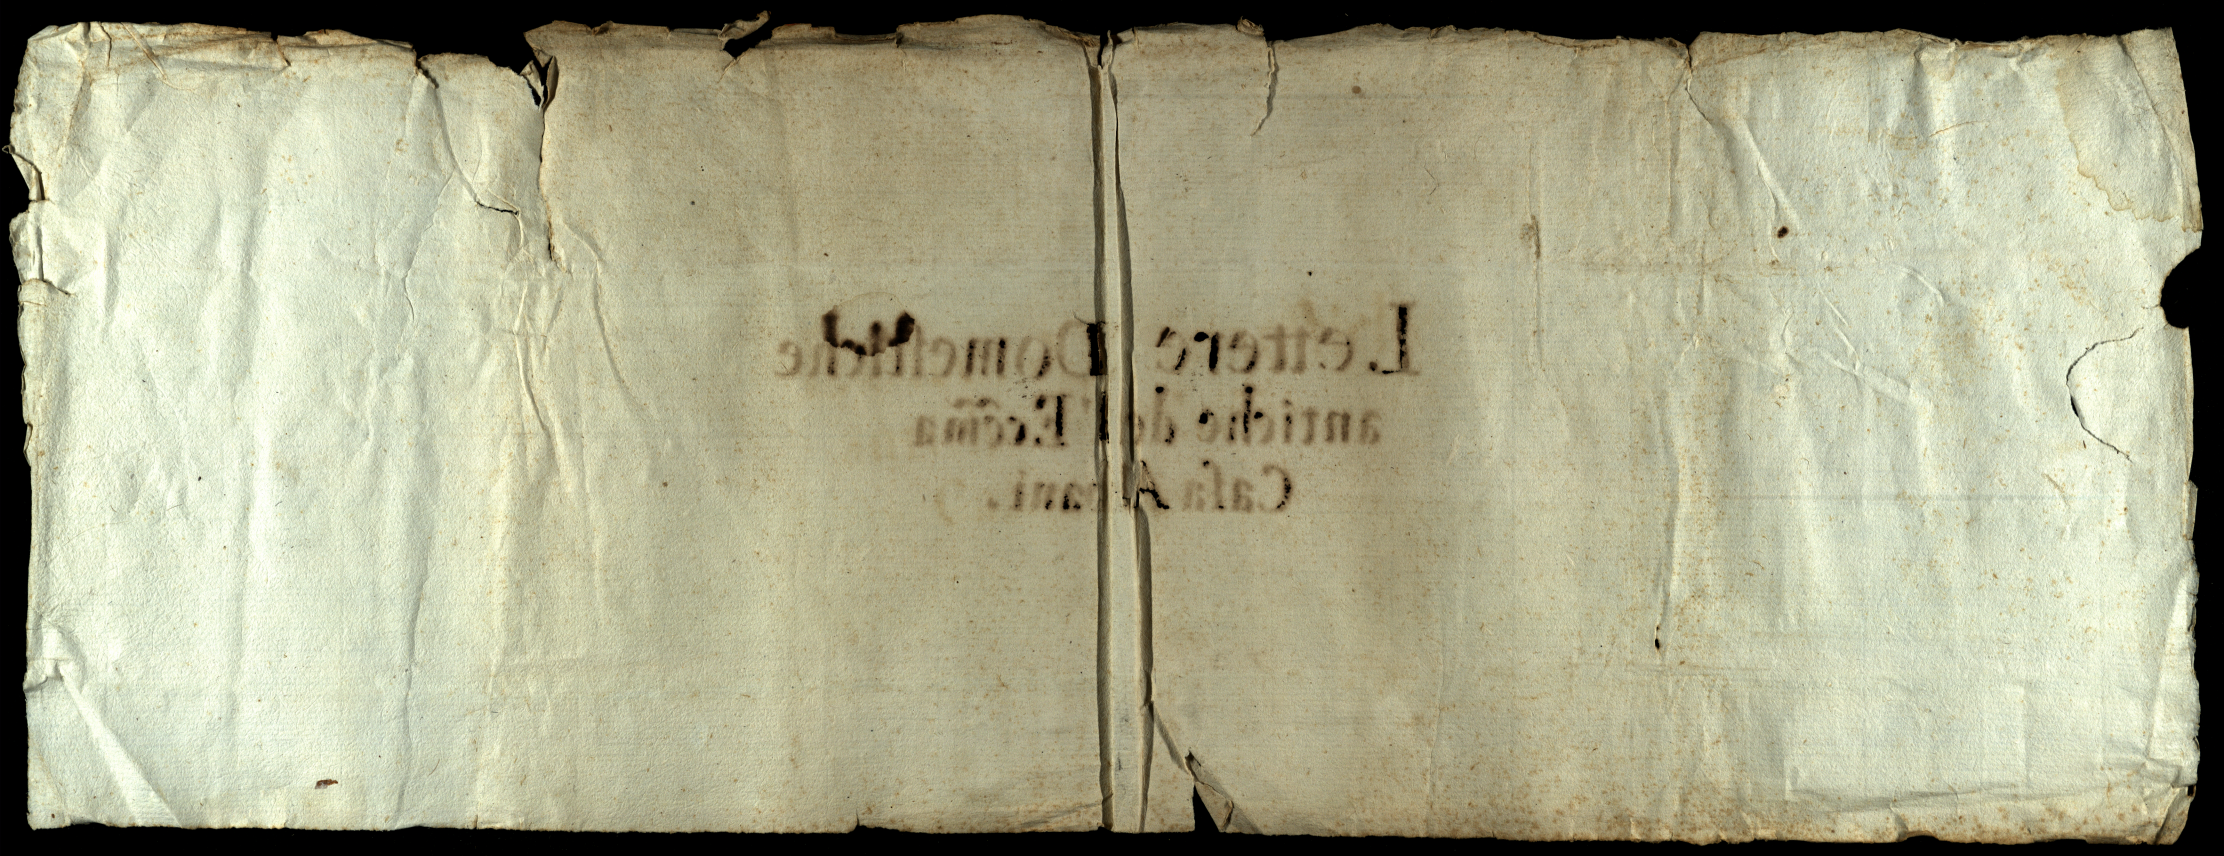 Lettere Domeſtiche
antiche del' Ecc̃m̃a
Caſa